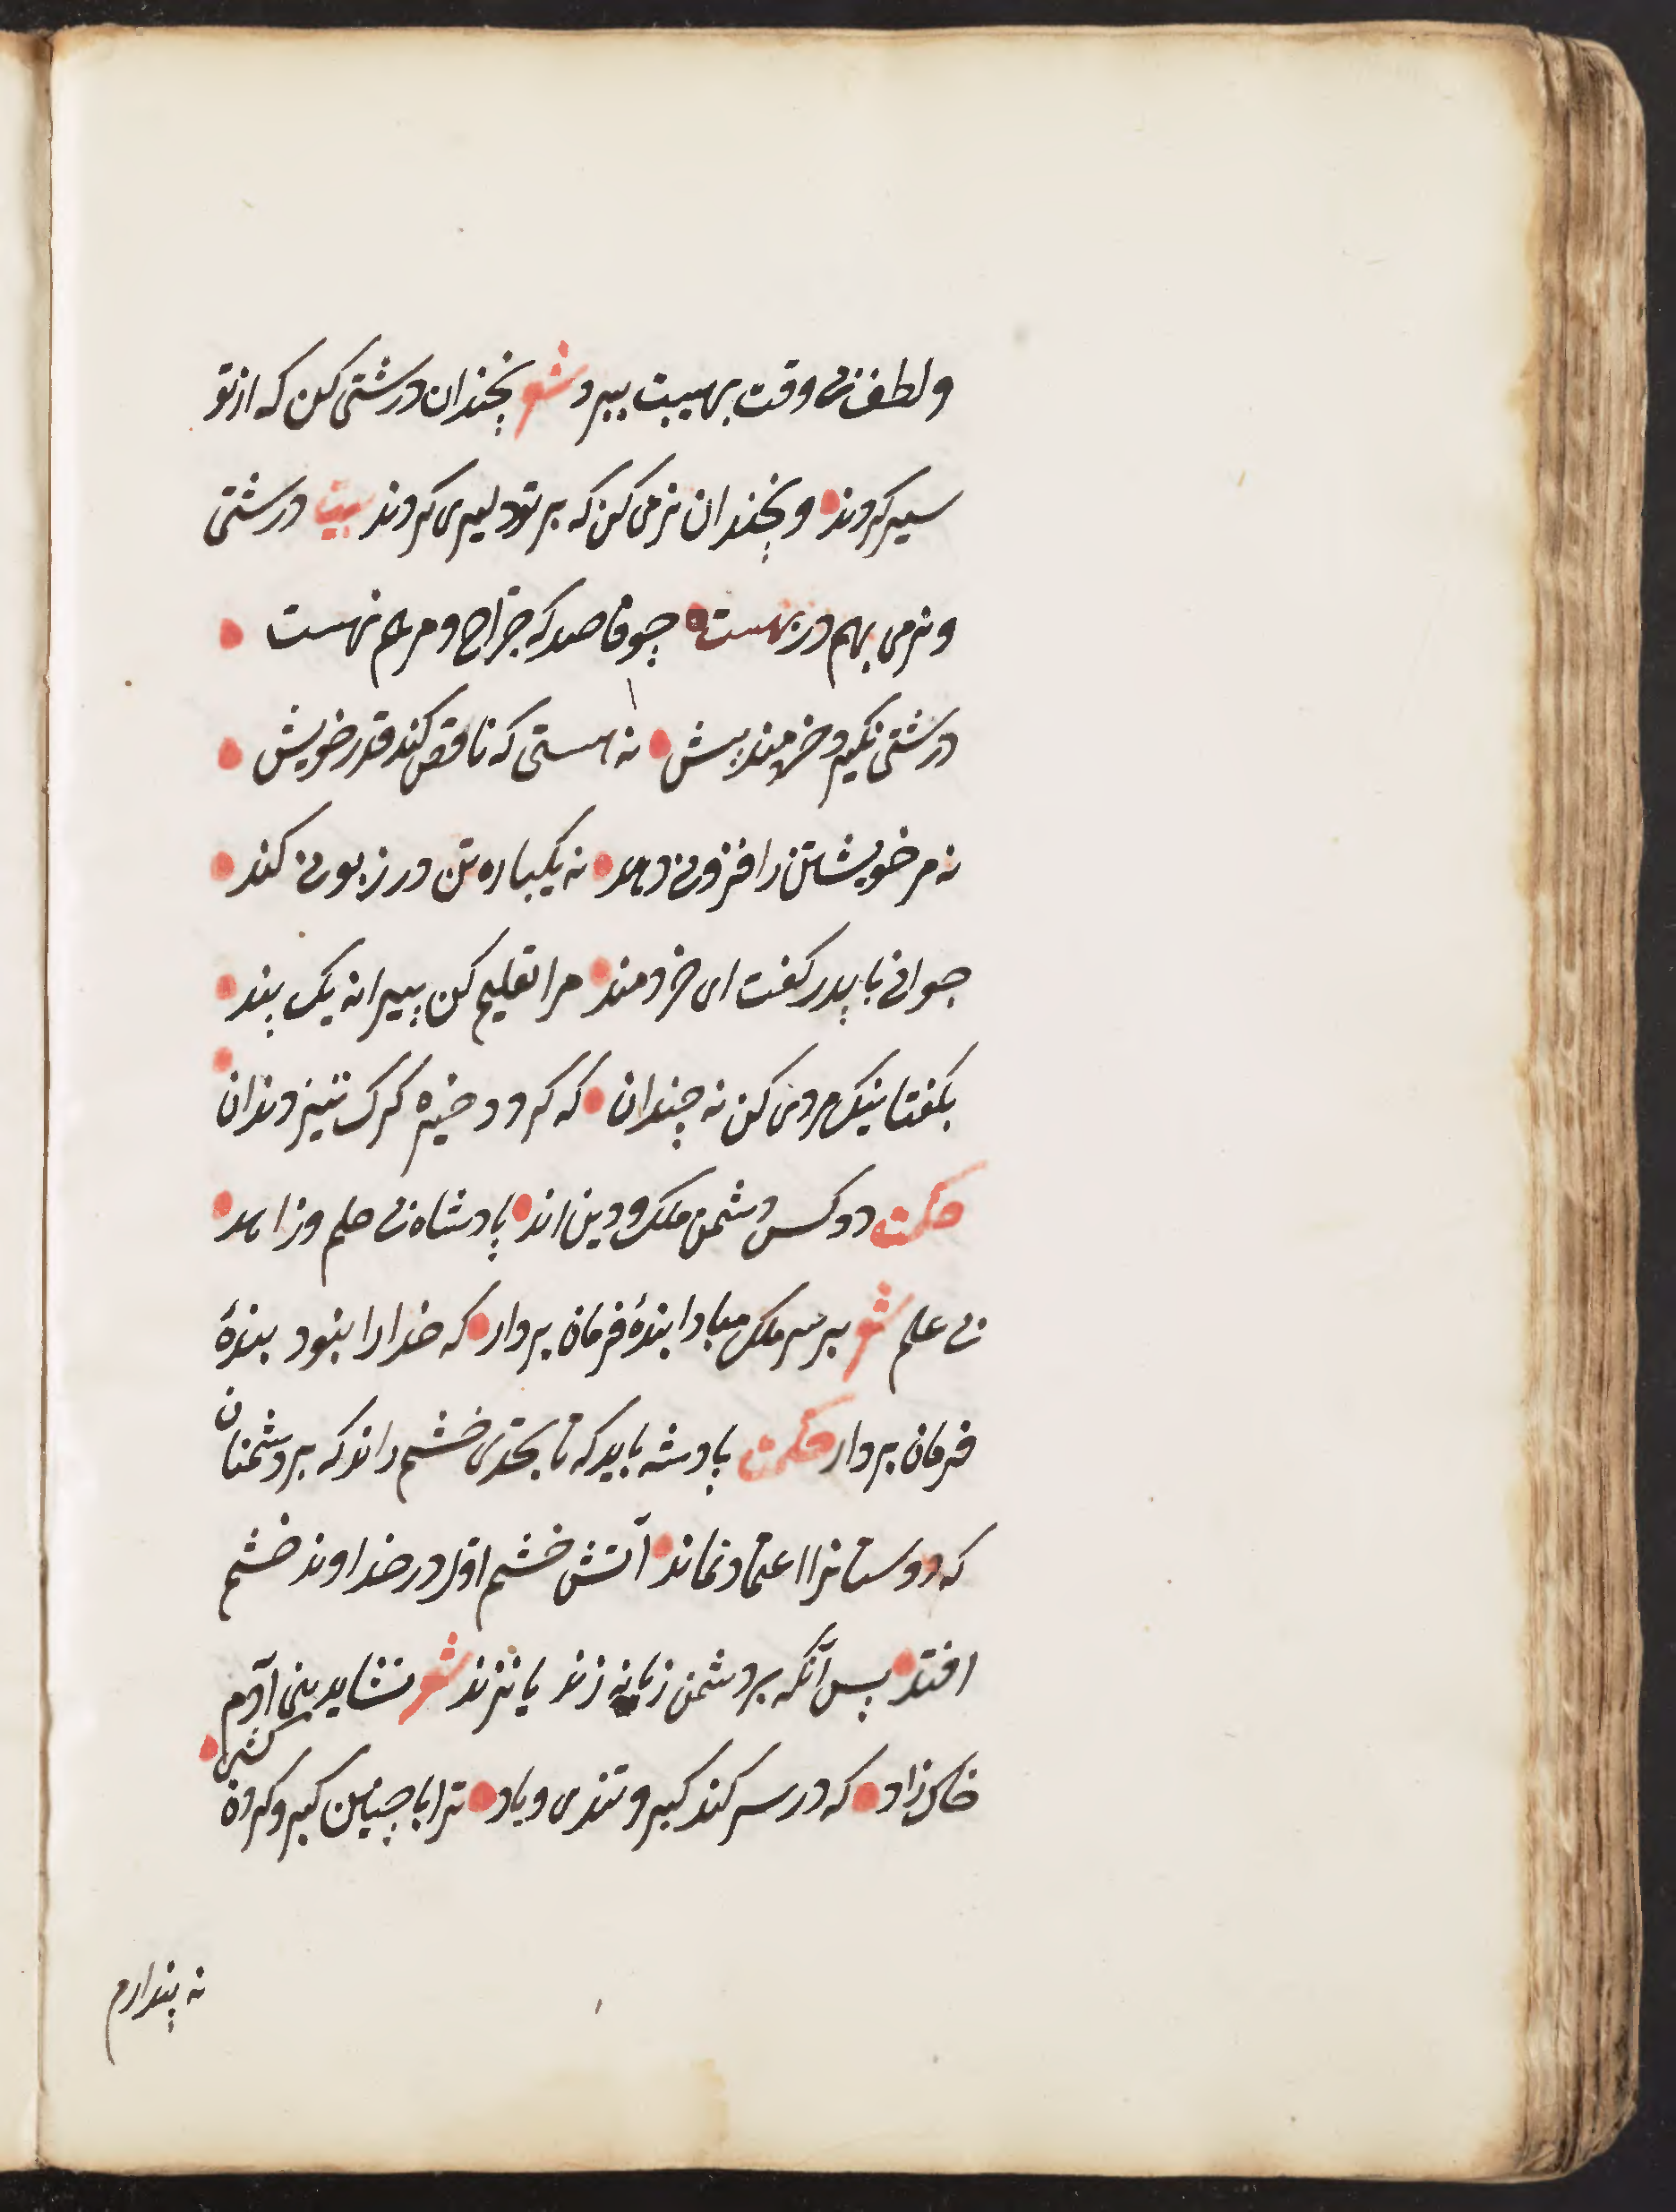 و لطف بی وقت هیبت ببرد شعر نچندان درشتی کن که از تو
سیر کردند و نچندان نرمی کن که بر تو دلیری کردند بیت درشتی
و نرمی بهم در بهست چو فاصد که جراح و مرهم نهست
درشتی نگیرد خردمند پیش نه سستی که ناقص کند قدر خویش
نه مر خویشتن را فزونی دهد نه یکباره تن در زبونی کند
جوانی با پدر گفت ای خردمند مرا تعلیم کن پیرانه یک پند
بگفتا نیک مردی کن نه چندان که گردد خیره گرگ تیز دندان
حکمت دو کس دشمن ملک و دین اند پادشاه بی حلم و زاهد
بی علم شعر بر سر ملک مبادا بندهٔ فرمان بردار که خدا را نبود بندهٔ
فرمان بردار حکمت پادشه باید که تا بحدی خشم راند که بر دشمنان
که دوستانرا اعتماد نماند آتش خشم اول در خداوند خشم
افتد پس آنگه بر دشمن زبانه زند یا نزند شعر نشاید بنی آدم
خاک زاد که در سر کند کبر و تندی و باد ترا با چنین کبر و کردن کشی
نه پندارم